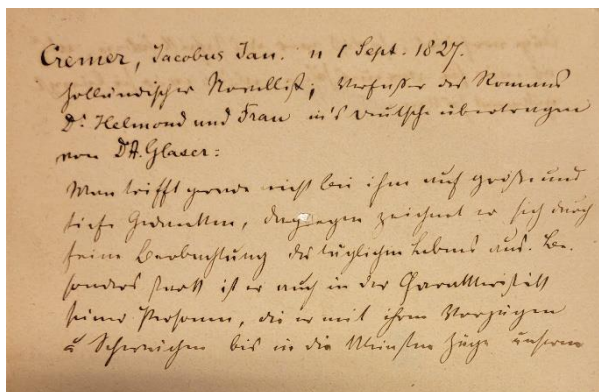 Cremer, Jacobus Jan. n 1 Sept. 1827.
holländischer Novellist; Verfasser des Romans
Dr Helmond und Frau in's Deutsche übertragen
von Dr A. Glaser:
Man trifft gerade nicht bei ihm auf große und
tiefe Gedanken, dagegen zeichnet er sich durch
feine Beobachtung des täglichen Lebens aus. Be-
sonders stark ist er auch in der Charakteristik
seiner Personen, die er mit ihren Vorzügen
u Schwächen bis in die kleinsten Züge unserem